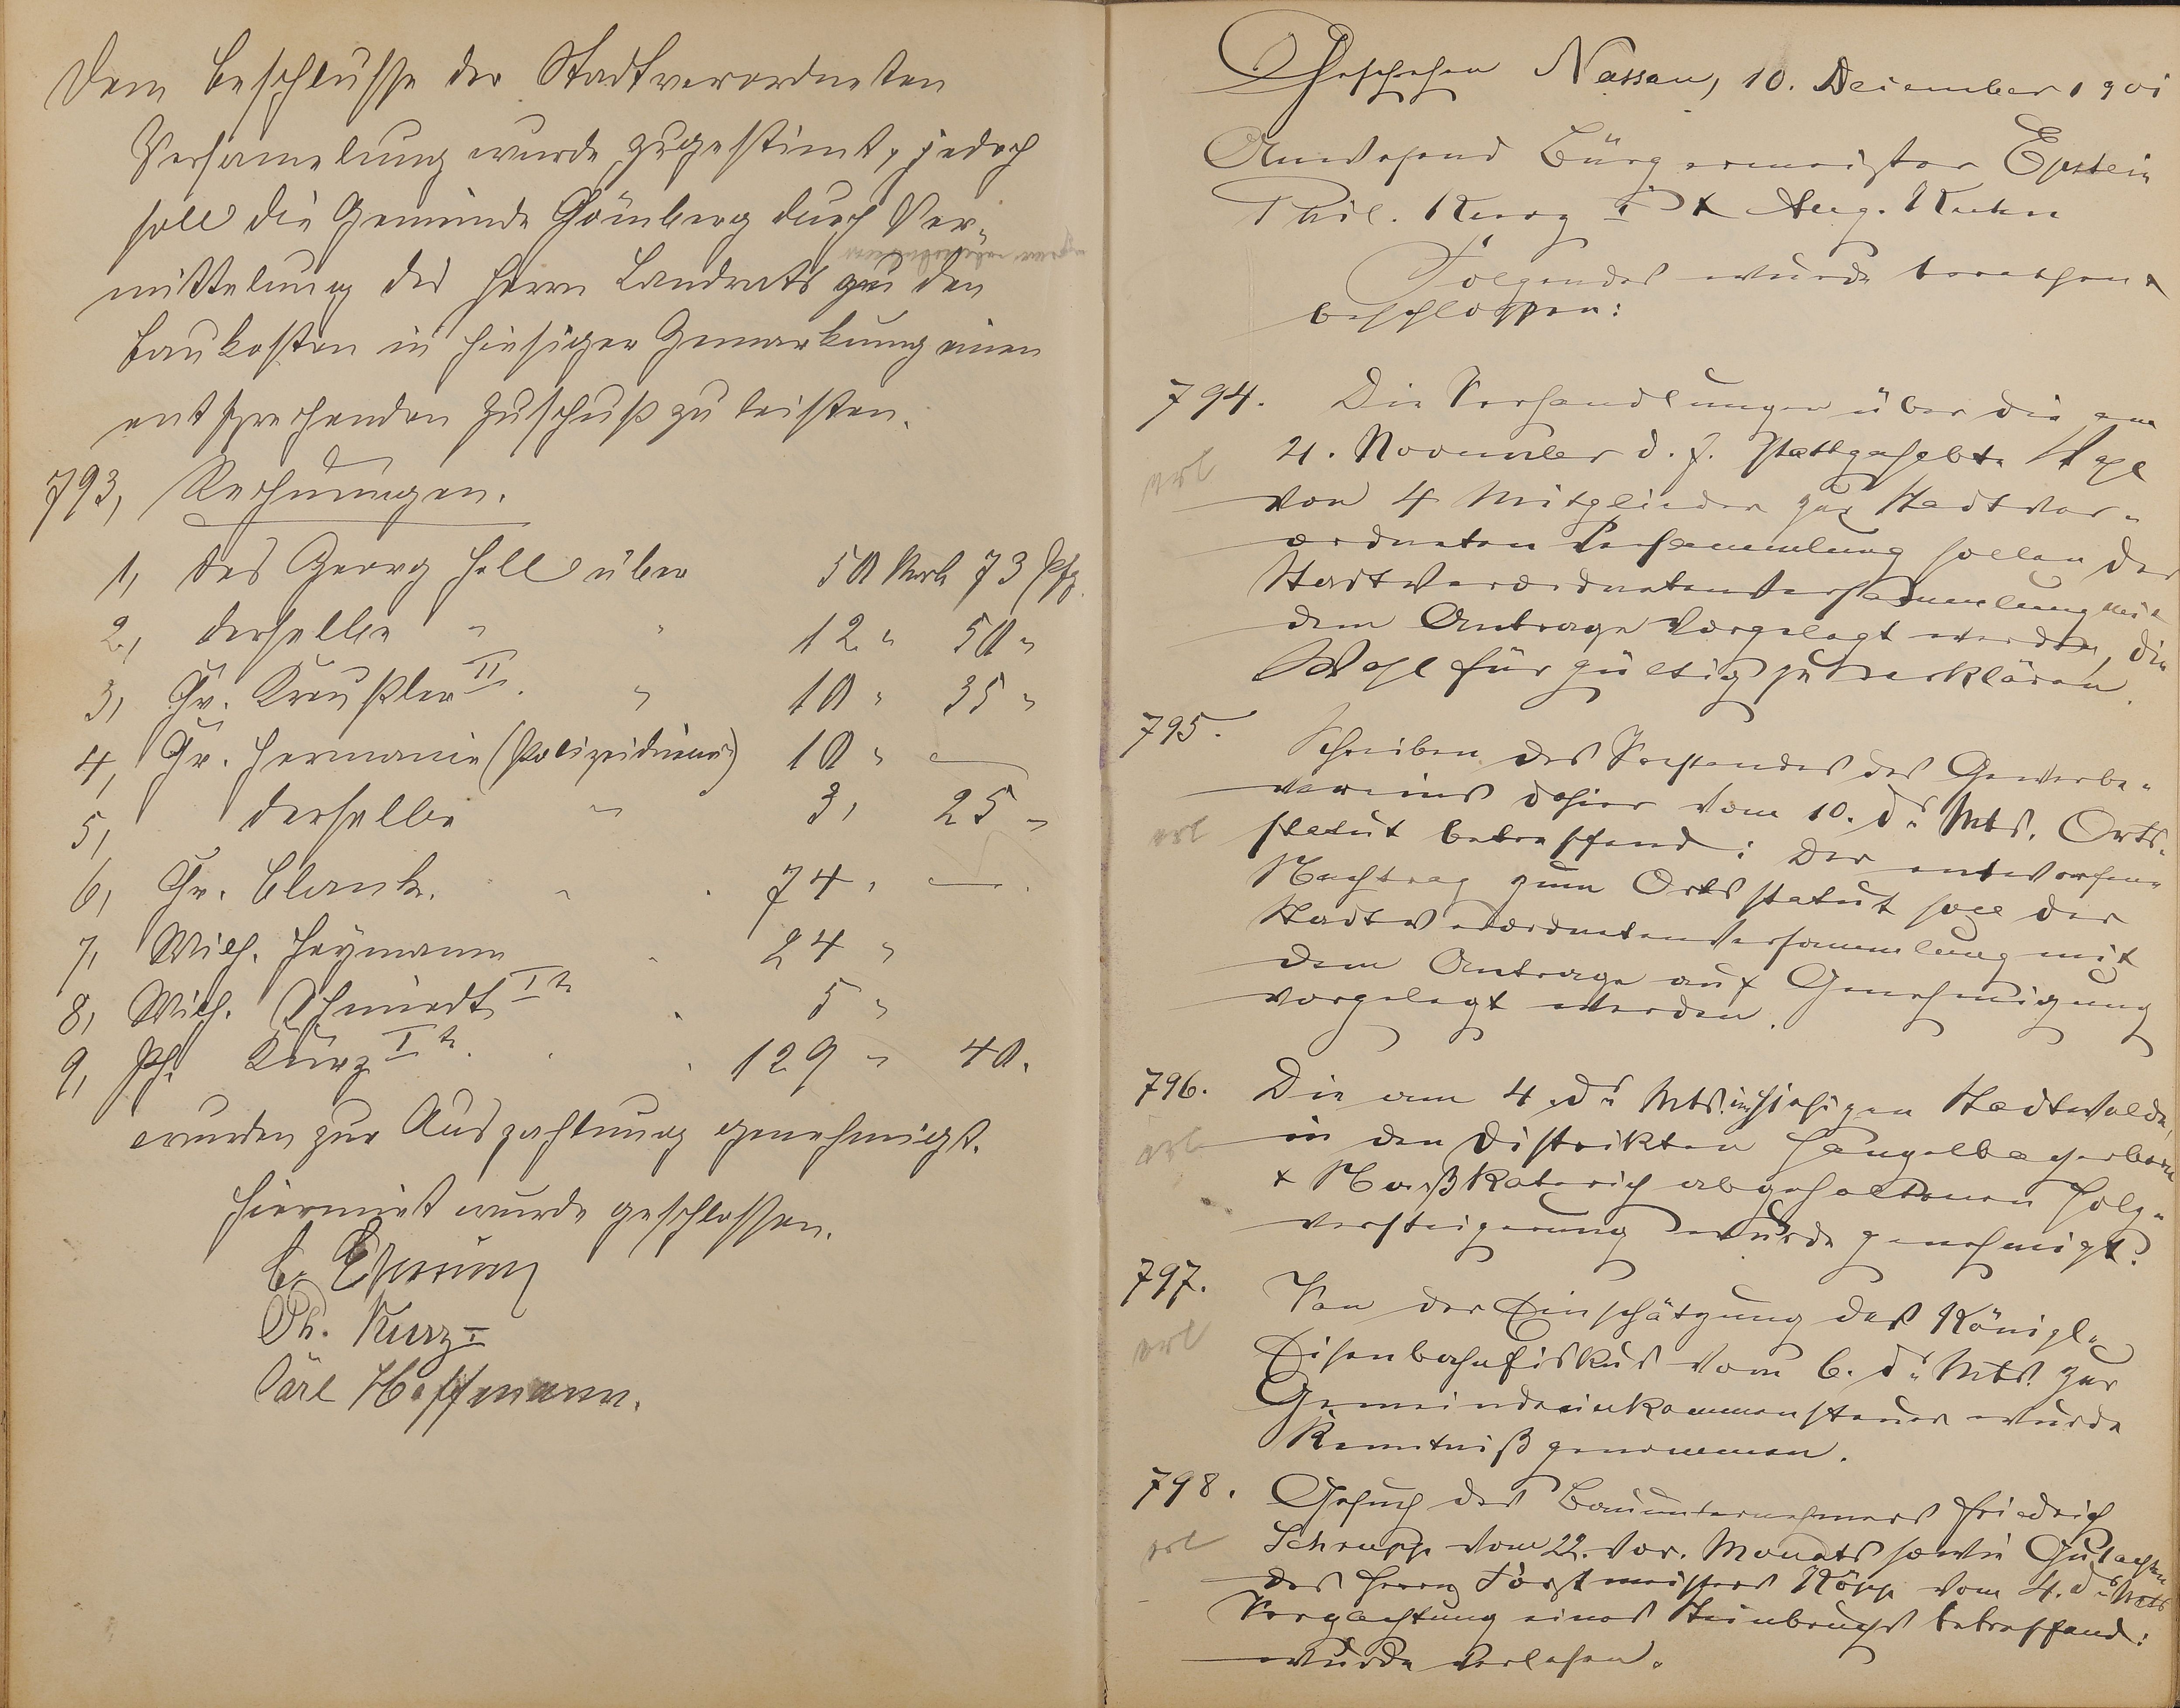 Dem Beschlusse der Stadtverordneten
Versamelung wurde zugestimt, jedoch
soll die Gemeinde Hömberg durch Ver„
mittelung des Herrn Landrats zu den
Baukosten in hiesiger Gemarkung einen
entsprechenden Zuschuß zu leisten.
793, Rechnungen.
1, des Georg Holl über 50 Mrk 73 Pfg.
2, derselbe " " 12 " 50 "
3, Chr. Kreußler II. " 10 " 35 "
4, Chr. Hermanie (Polizeidiener) 10 " —
5, derselbe " 3, 25 "
6, Chr. Blank. " . 74, — .
7, Wilh. Heymann " . 24 "
8, Wilh. Schmidt Ir . 5 "
9, Ph. Kurz Ir . . 129 " 40.
wurden zur Auszahlung genehmigt.
Hiermit wurde geschlossen.
Ph. Kurz I
Carl Hoffmann.
Geschehen Nassau, 10. Deiember 1901
Anwesend Bürgermeister Epstein
Phil. Kurz I & Aug. Kuhn
Folgendes wurde berathen &
beschlossen:
794. Die Verhandlungen über die am
erl 21. November d. J. stattgehabte Wahl
von 4 Mitglieder zur Stadtver„
ordneten Versammlung sollen der
Stadtverordnetenversammlung mit
dem Antrage vorgelegt werden, die
Wahl für gültig zu erklären.
795. Schreiben des Vorstandes des Gewerbe„
vereins dahier vom 10. ds Mts. Orts„
erl statut betreffend: Der entworfene
Nachtrag zum Ortsstatut soll der
Stadtverordnetenversammlung mit
dem Antrage auf Genehmigung
vorgelegt werden.
796. Die am 4. ds Mts. im hiesigen Stadtwalde,
erl in den Distrikten Hangelbacherborn
& Naßkaterich abgehaltenen Holz„
versteigerung wurde genehmigt.
797. Von der Einschätzung des Königl.
erl Eisenbahnfiskus vom 6. ds Mts. zur
Gemeindeeinkommensteuer wurde
Kenntniß genommen.
798. Gesuch des Bauunternehmers Friedrich
erl Schrupp vom 22. vor. Monats sowie Gutachten
des Herrn Forstmeisters Köpp vom 4. ds Mts
Verpachtung eines Steinbruchs betreffend:
wurde verlesen.